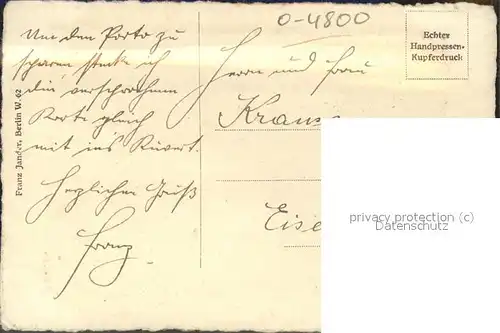 Um den Porto zu
sparen stecke ich
die versprochene
Karte gleich
mit ins Kuvert.
Herzlichen Gruß
Franz
Franz Jander, Berlin W. 62
0-4800
Echter
Handpressen-
Kupferdruck
Herrn und Frau
Kraus
Eise
privacy protection (c)
Datenschutz